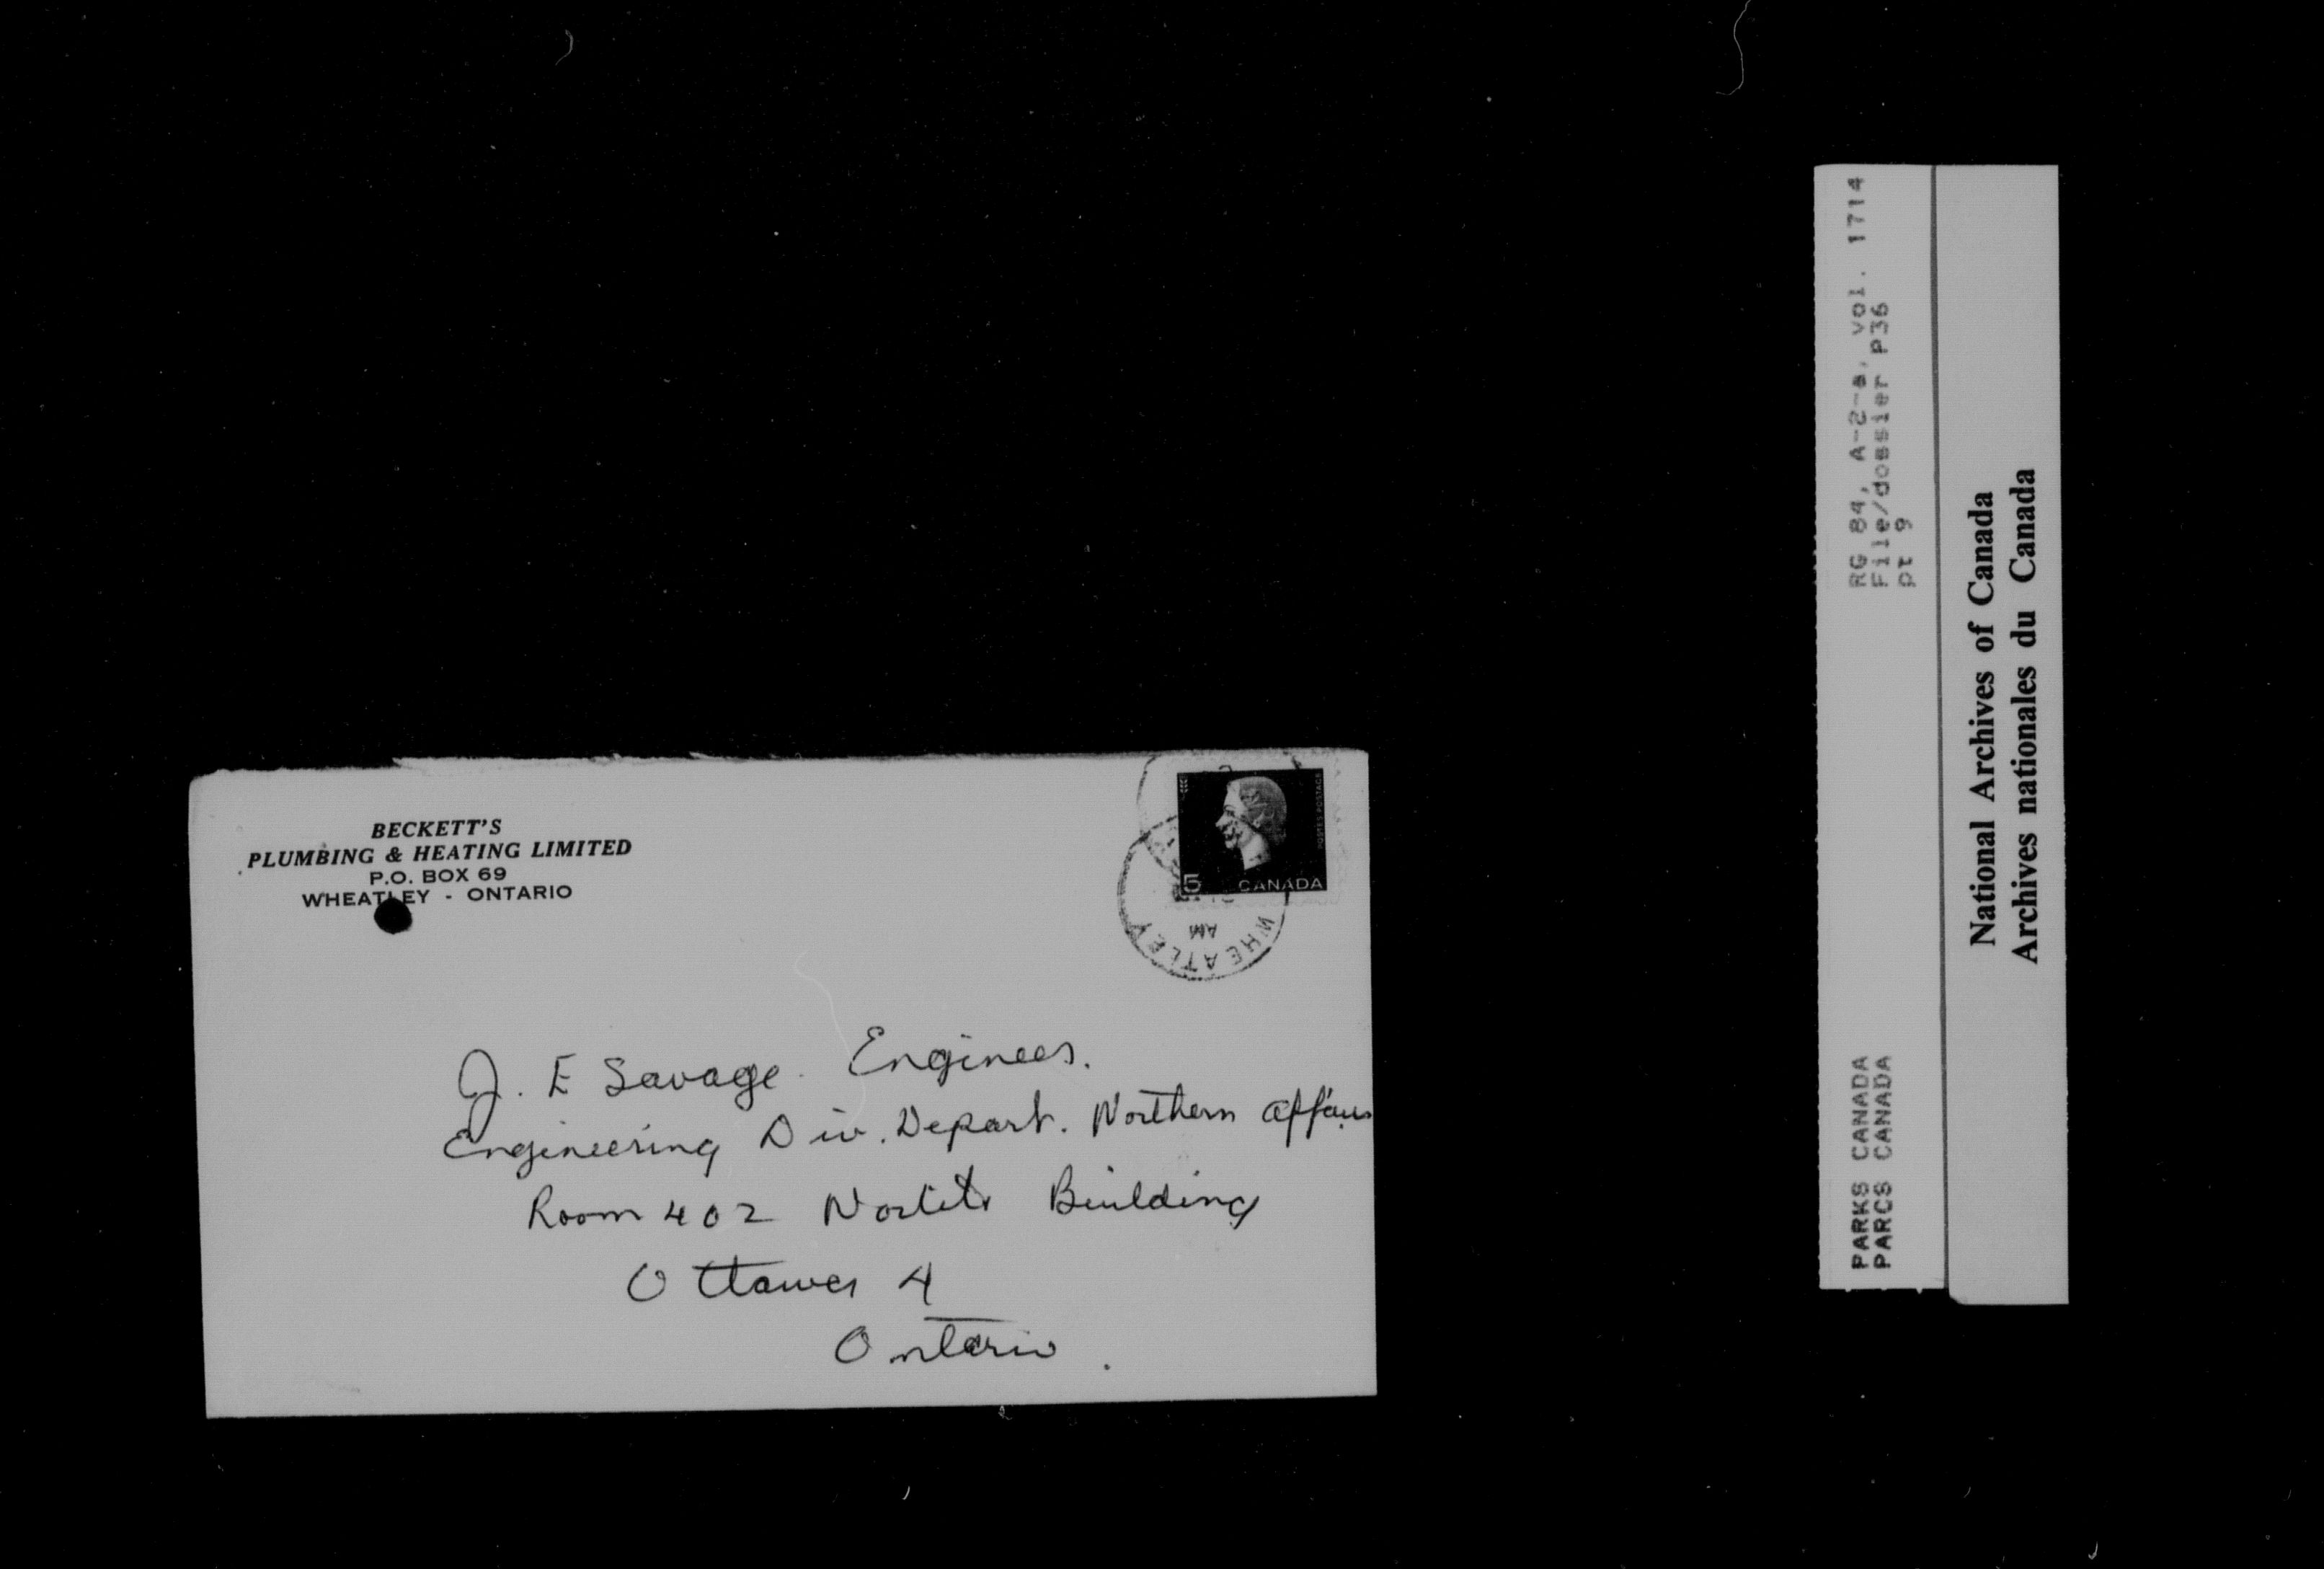 BECKETT'S
PLUMBING & HEATING LIMITED
P.O. BOX 69
WHEATLEY - ONTARIO
POSTES POSTAGE
5 CANADA
WHEATLEY
AM
J. E Savage. Engineer.
Engineering Div. Depart. Northern Affairs
Room 402 Building
Ottawa 4
Ontario.
RG 84, A-2-a, vol. 1714
File/dossier P36
pt 9
PARKS CANADA
PARCS CANADA
National Archives of Canada
Archives nationales du Canada